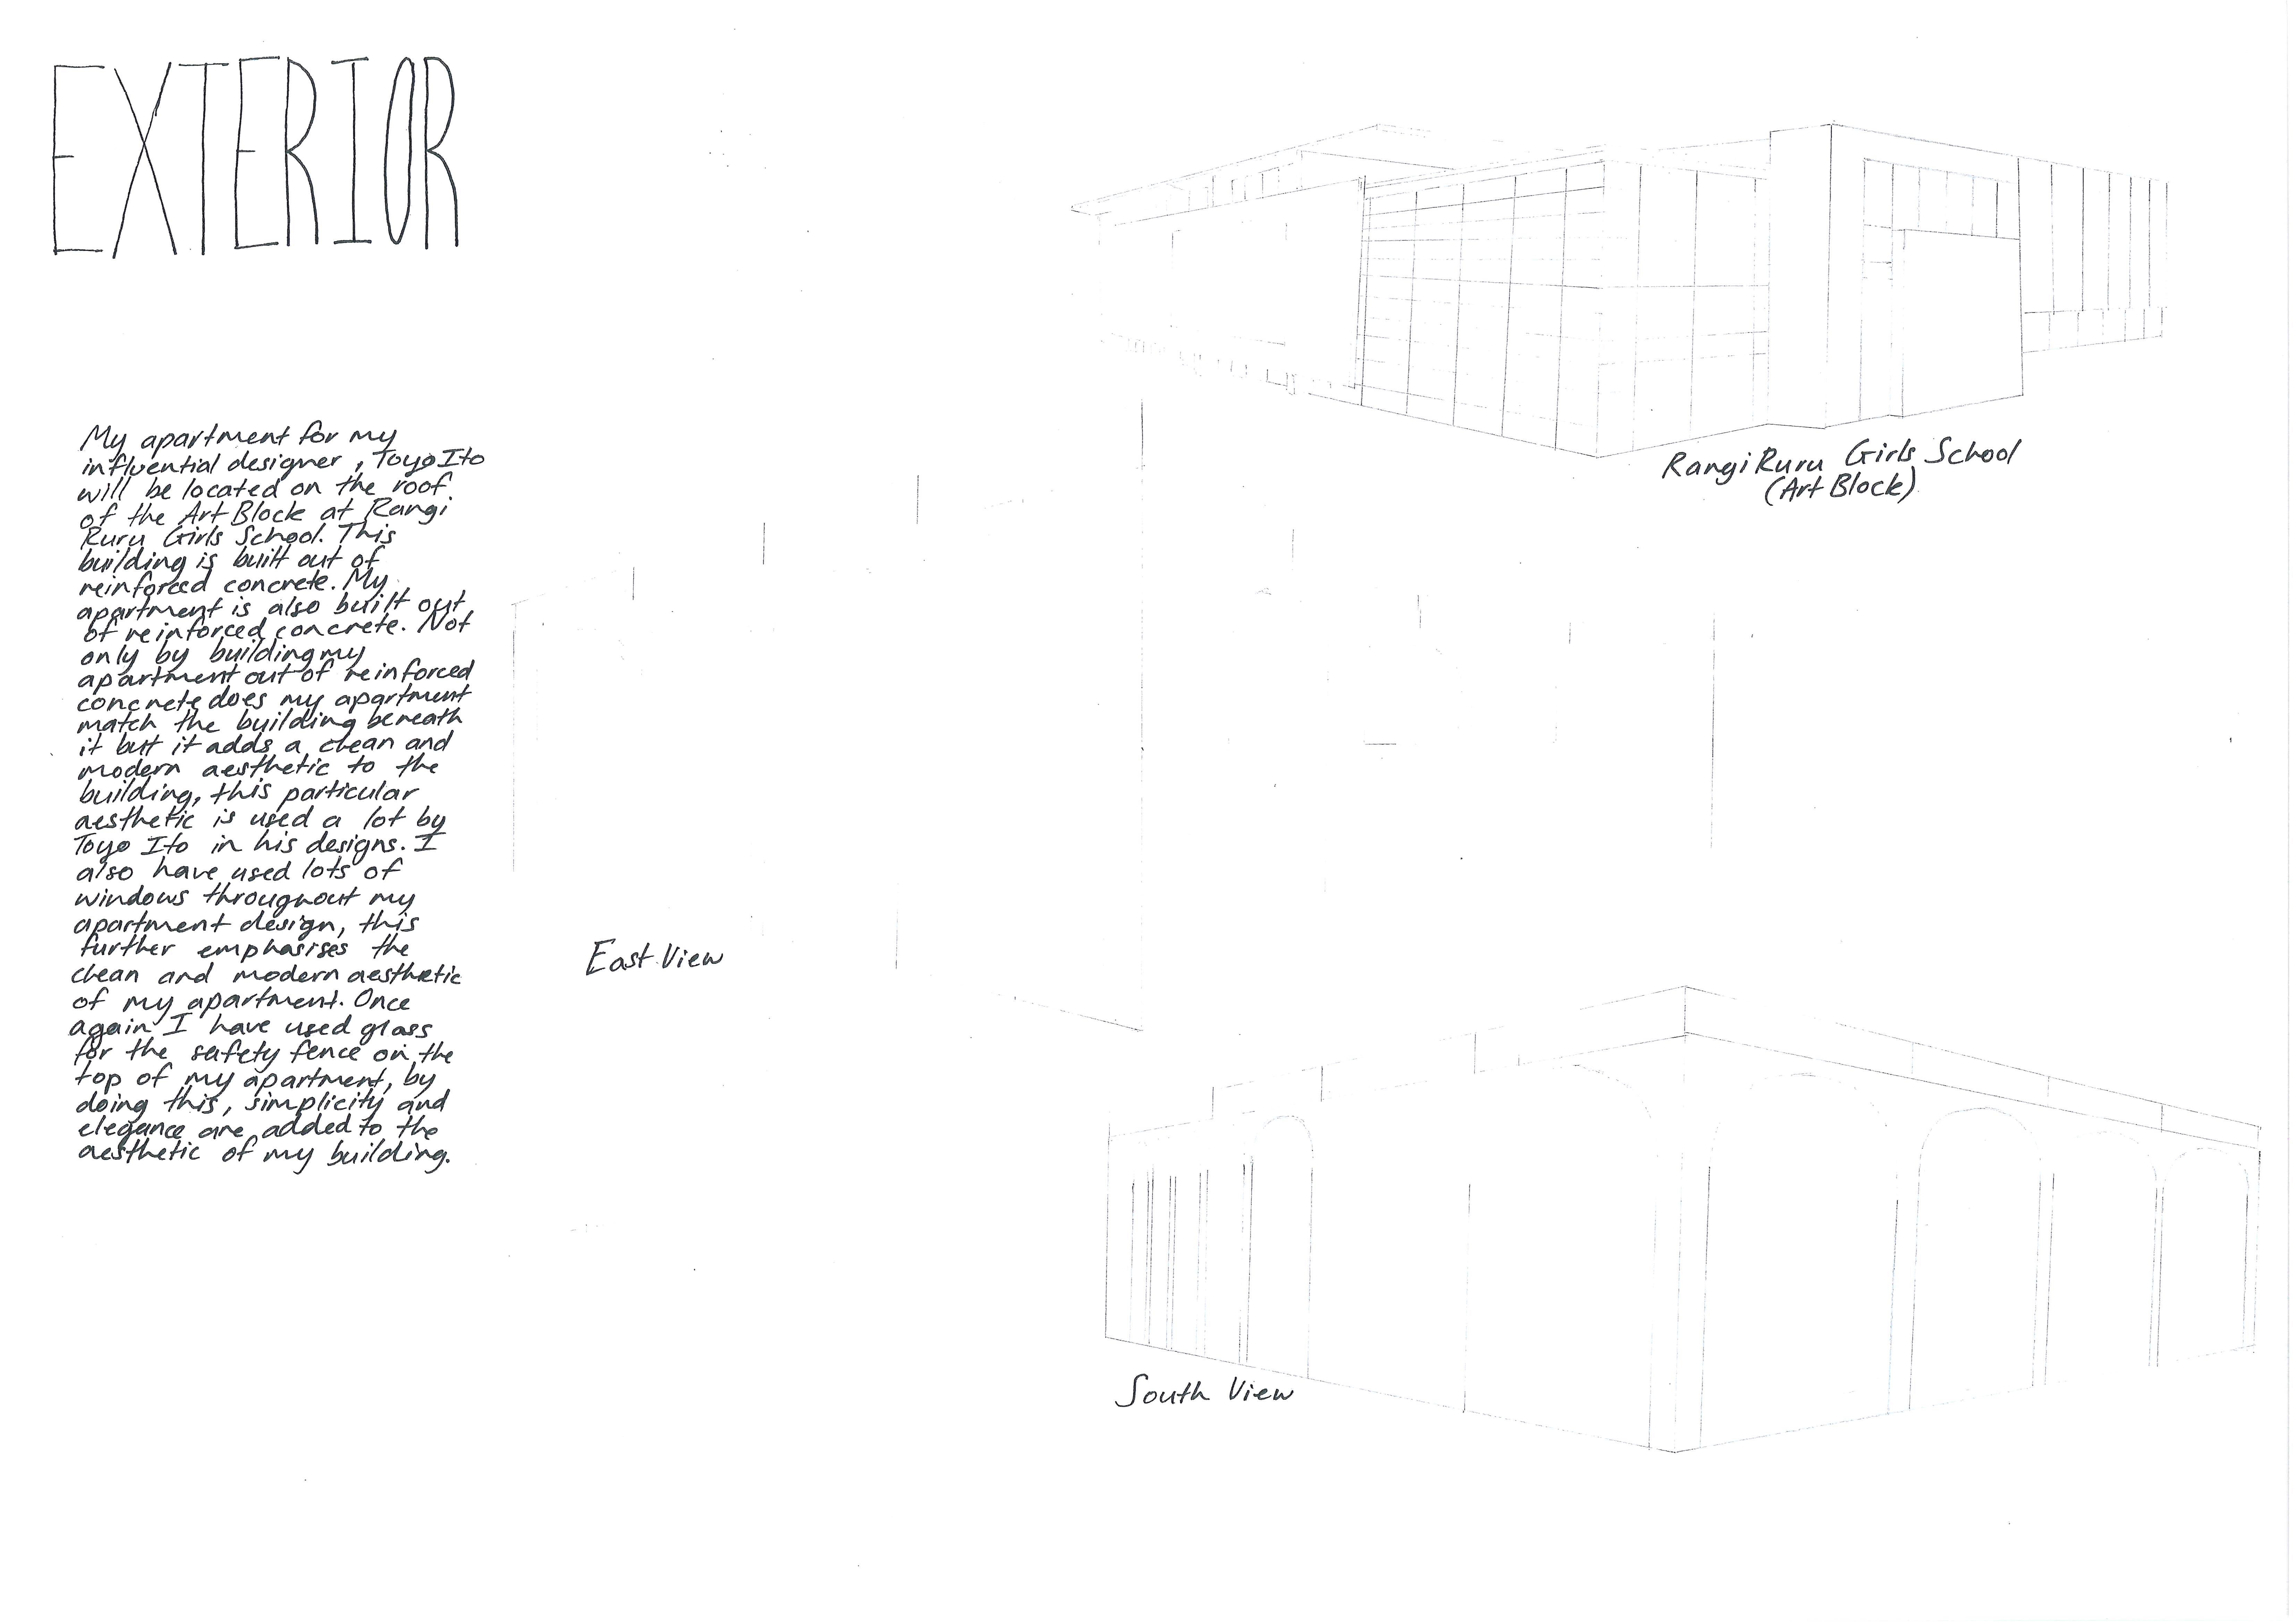 EXTERIOR
My apartment for my
influential designer, Toyo Ito
will be located on the roof
of the Art Block at Rangi
Ruru Girls School. This
building is built out of
reinforced concrete. My
apartment is also built out
of reinforced concrete. Not
only by building my
apartment out of reinforced
concrete does my apartment
match the building beneath
it but it adds a clean and
modern aesthetic to the
building, this particular
aesthetic is used a lot by
Toyo Ito in his designs. I
also have used lots of
windows throughout my
apartment design, this
further emphasises the
clean and modern aesthetic
of my apartment. Once
again I have used glass
for the safety fence on the
top of my apartment, by
doing this, simplicity and
elegance are added to the
aesthetic of my building.
Rangi Ruru Girls School
(Art Block)
East View
South View